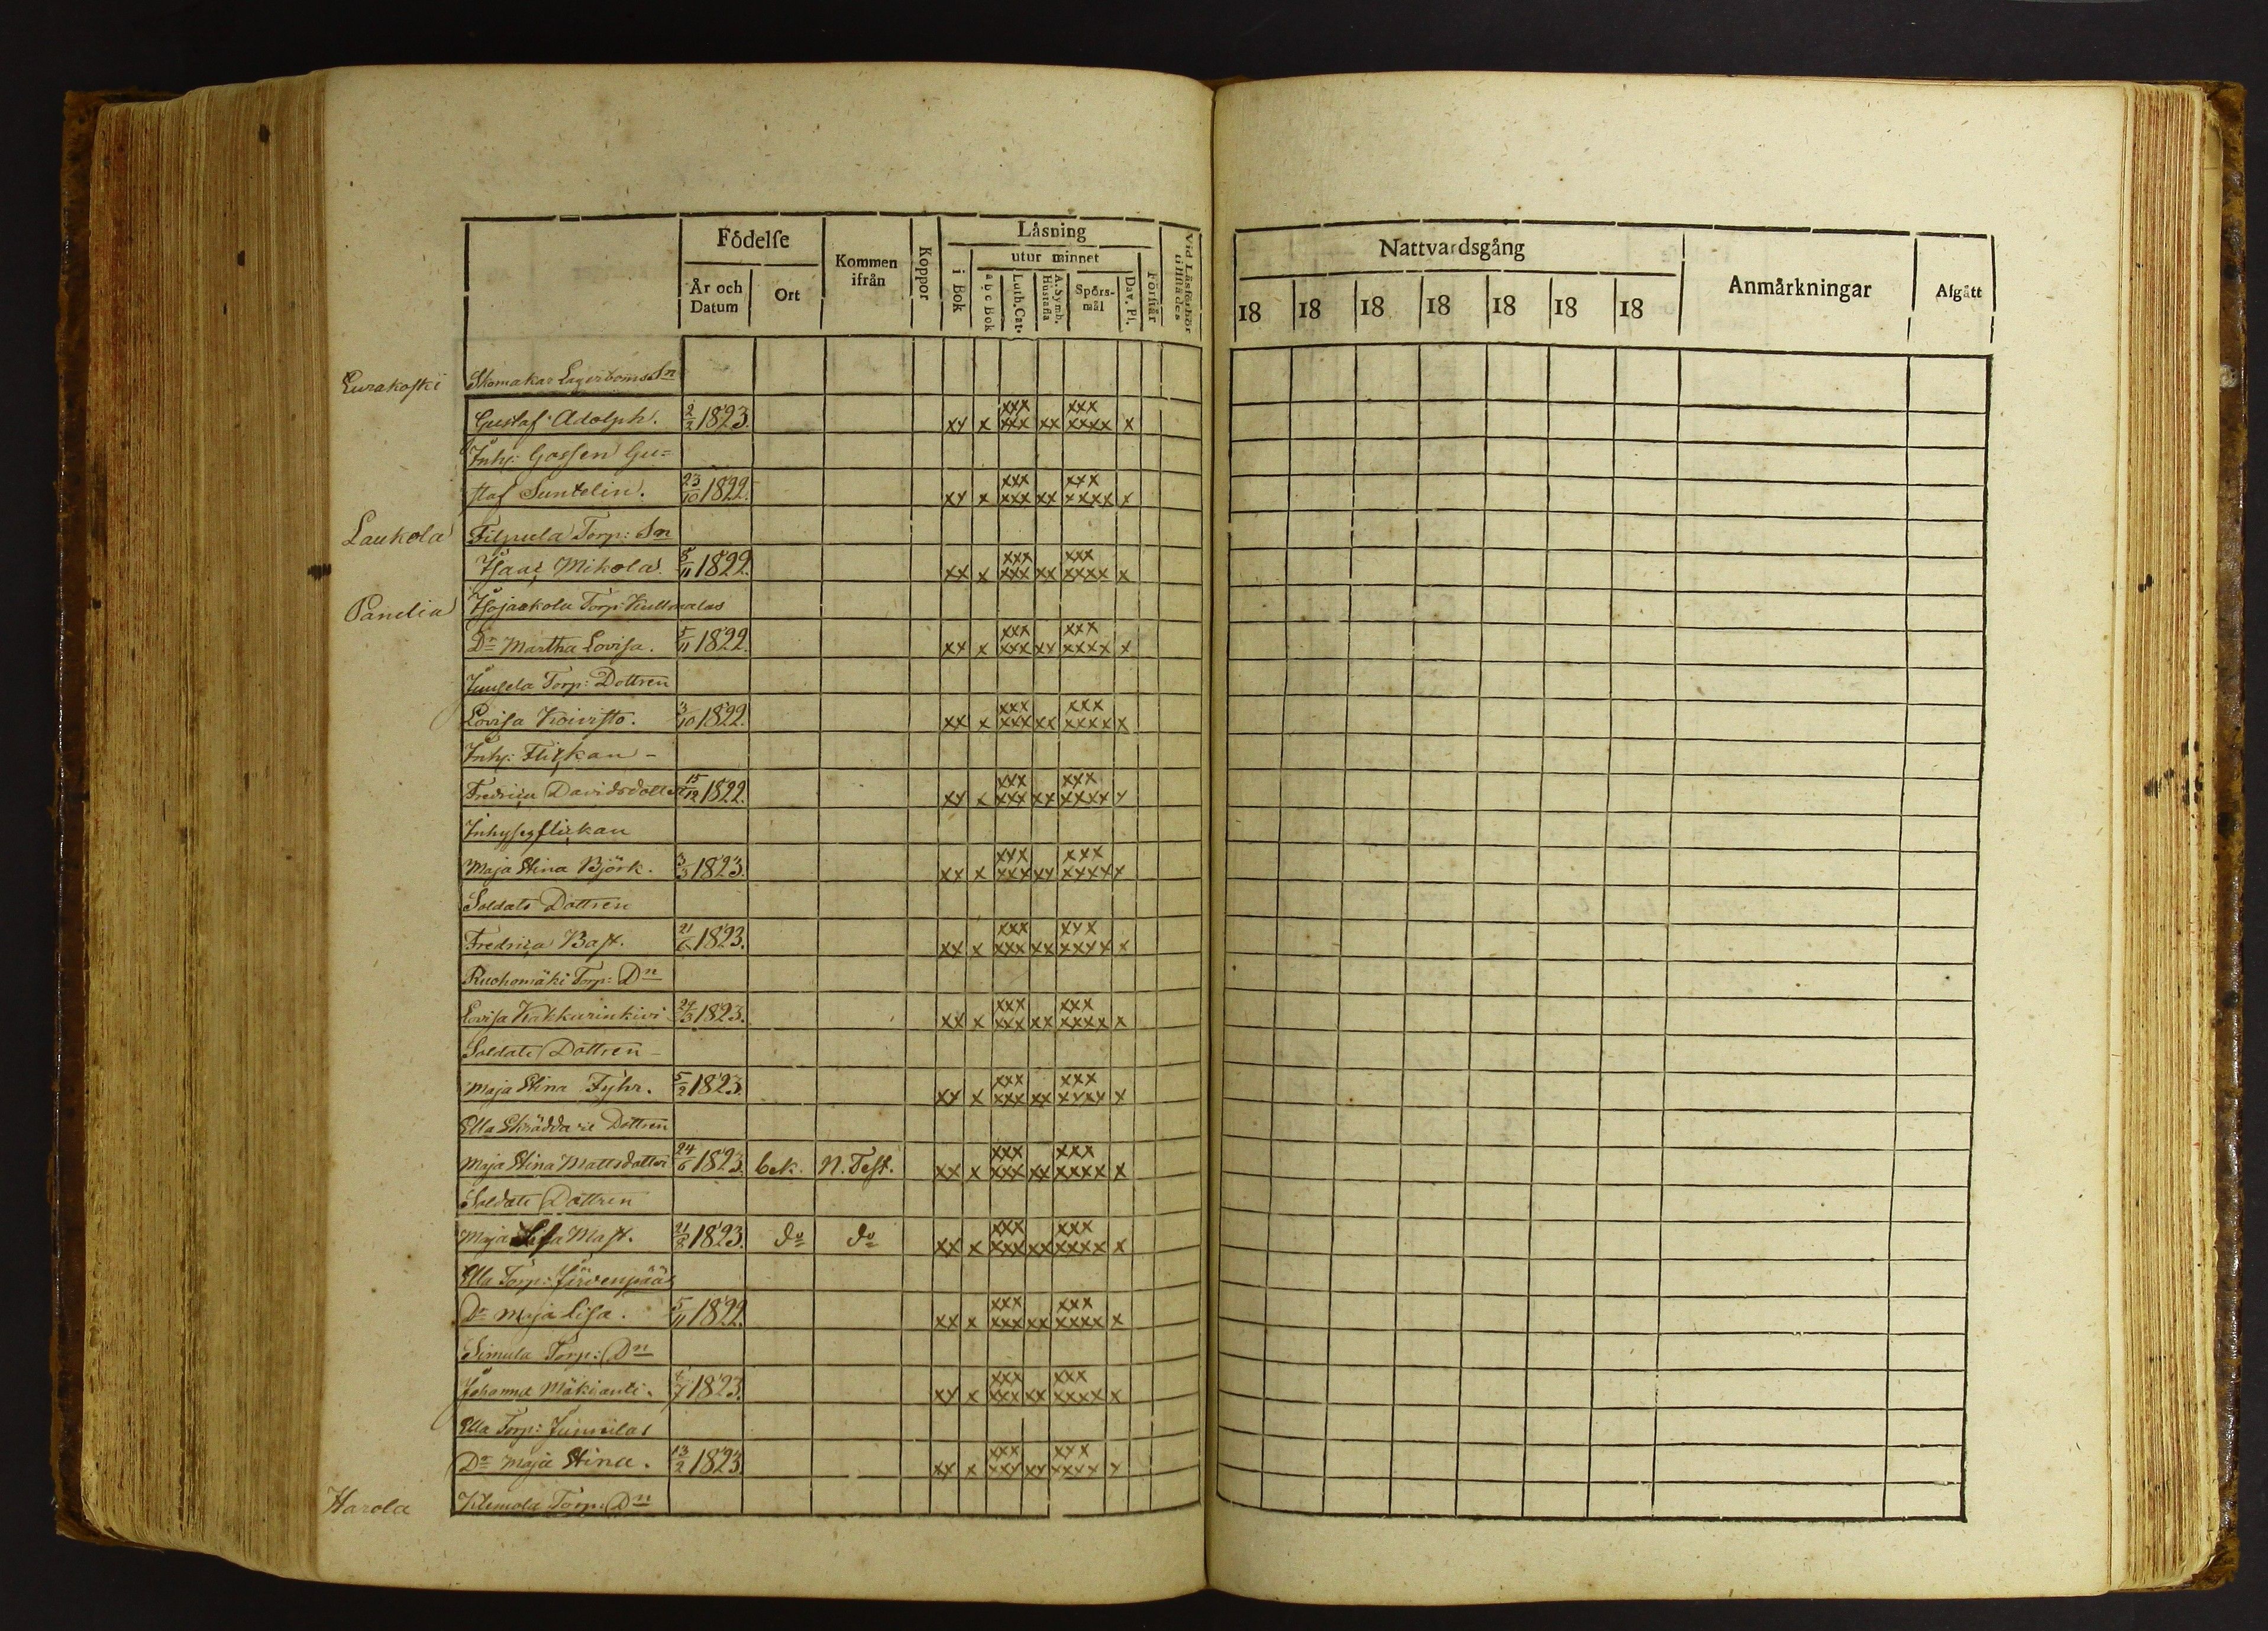 Födelse
Kommen ifrån
Koppor
Läsning
Vid Läsförhör tillstädes
År och Datum
Ort
i Bok
utur minnet
a b c Bok
Luth. Cat.
A. Symb. Hustafla
Spörs-mål
Dav. Ps.
Förstår
Eurakoski Skomakar Lagerboms Sn
Gustaf Adolph. 2/2 1823. xx x xxx xxx xx xxx xxxx x
Inhy: Gossen Gu=
staf Suntelin. 23/10 1822. xx x xxx xxx xx xxx xxxx x
Laukola Filpula Torp: Sn
Isaac Mikola. 5/11 1822. xx x xxx xxx xx xxx xxxx x
Panelia Isojaakola Torp: Kullmalas
Dn Martha Lovisa. 5/11 1822. xx x xxx xxx xx xxx xxxx x
Juusela Torp: Dottren
Lovisa Koivisto. 3/10 1822. xx x xxx xxx xx xxx xxxx x
Inhy: Flickan -
Fredrica Davidsdotter 15/12 1822. xx x xxx xxx xx xxx xxxx x
Inhyses flickan
Maja Stina Björk. 3/3 1823. xx x xxx xxx xx xxx xxxx x
Soldats Dottren
Fredrica Bast. 21/6 1823. xx x xxx xxx xx xxx xxxx x
Ruohomäki Torp: Dn
Lovisa Kakkurinkivi 24/3 1823. xx x xxx xxx xx xxx xxxx x
Soldats Dottren -
Maja Stina Fyhr. 5/2 1823. xx x xxx xxx xx xxx xxxx x
Ella Skräddare Dottren
Maja Stina Mattsdotter 24/6 1823. bek. N. Test. xx x xxx xxx xx xxx xxxx x
Soldats Dottren
Maja Lisa Mast. 21/8 1823. do do xx x xxx xxx xx xxx xxxx x
Ella Torp: Järvenpääs
Dn Maja Lisa. 5/11 1822. xx x xxx xxx xx xxx xxxx x
Simula Torp: Dn
Johanna Mäkianti. 1823. xx x xxx xxx xx xxx xxxx x
Ella Torp: Junnilas
Dn Maja Stina. 13/2 1823. xx x xxx xxx xx xxx xxxx x
Harola Klemola Torp: Dn
Nattvardsgång
Anmärkningar
Afgått
18 18 18 18 18 18 18